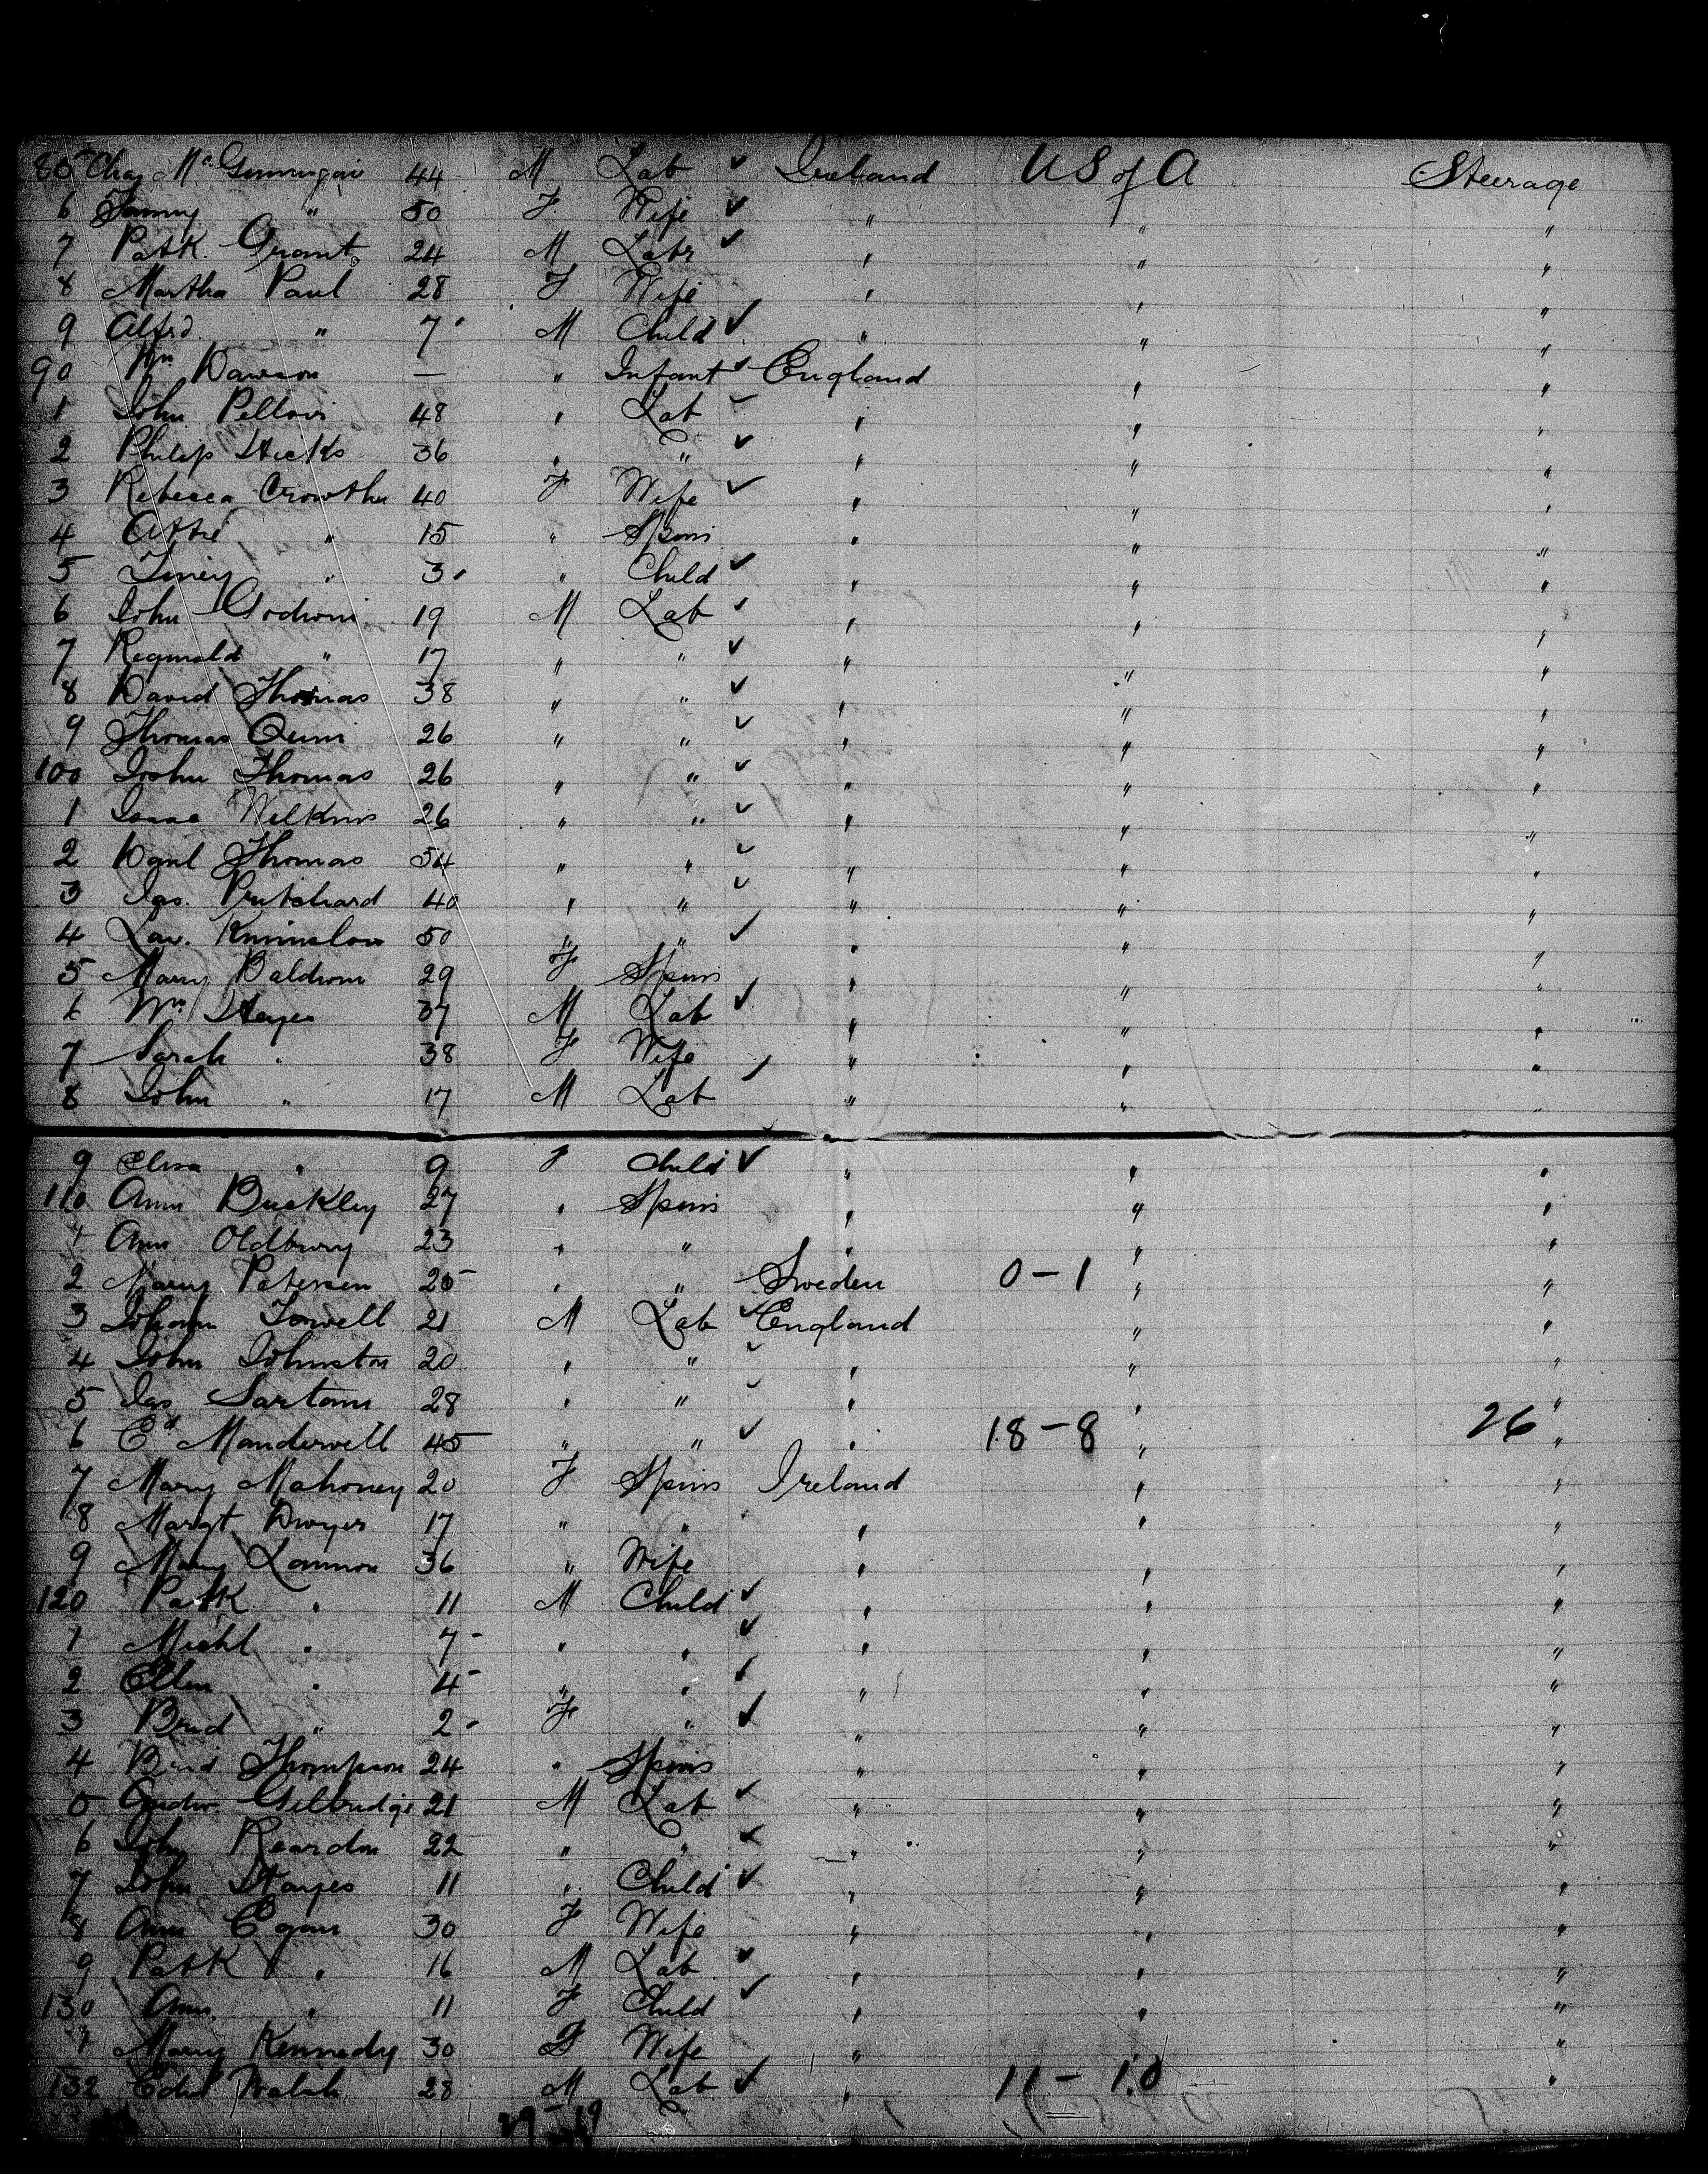 85 Chas Mc 44 M Lab ✓ Ireland US of A Steerage
6 Fanny " 50 F Wife ✓ " " "
7 Patk. Grant 24 M Labr ✓ " " "
8 Martha Paul 28 F Wife " " "
9 Alfrd " 7 M Child ✓ " " "
90 Wm Dawson — " Infant ✓ England " "
1 John 48 " Lab ✓ " " "
2 Philip Hicks 36 " " ✓ " " "
3 Rebecca Crowther 40 F Wife ✓ " " "
4 " 15 " Spins " " "
5 " 3 " Child ✓ " " "
6 John Godwin 19 M Lab ✓ " " "
7 Reginald " 17 " " ✓ " " "
8 David Thomas 38 " " ✓ " " "
9 Thomas Quin 26 " " ✓ " " "
100 John Thomas 26 " " ✓ " " "
1 Isaac Wilkins 26 " " ✓ " " "
2 Danl Thomas 54 " " ✓ " " "
3 Jas. Pritchard 40 " " ✓ " " "
4 Law. 50 " " ✓ " " "
5 Mary Baldwin 29 F Spins " " "
6 Wm Hayes 37 M Lab ✓ " " "
7 Sarah " 38 F Wife " " "
8 John " 17 M Lab ✓ " " "
9 Eliza " 9 F Child ✓ " " "
110 Ann Buckley 27 " Spins " " "
1 Ann Oldbury 23 " " " " "
2 Mary Petersen 25 " " Sweden 0-1 " "
3 Johann 21 M Lab ✓ England " "
4 John Johnston 20 " " ✓ " " "
5 Jas Sartain 28 " " ✓ " " "
6 Ed Manderwell 45 " " ✓ " 18-8 " 26 "
7 Mary Mahoney 20 F Spins Ireland " "
8 Margt Dwyer 17 " " " " "
9 Mary Lannon 36 " Wife " " "
120 Patk " 11 M Child ✓ " " "
1 Michl " 7 " " ✓ " " "
2 Ellen " 4 " " ✓ " " "
3 Brid " 2 F " ✓ " " "
4 Brid Thompson 24 " Spins " " "
5 Andw. 21 M Lab ✓ " " "
6 John Reardon 22 " " ✓ " " "
7 John Hayes 11 " Child ✓ " " "
8 Ann Egan 30 F Wife " " "
9 Patk " 16 M Lab ✓ " " "
130 Ann " 11 F Child ✓ " " "
1 Mary Kennedy 30 F Wife " " "
132 Edwd Walsh 28 M Lab ✓ " 11-10 "
29-19